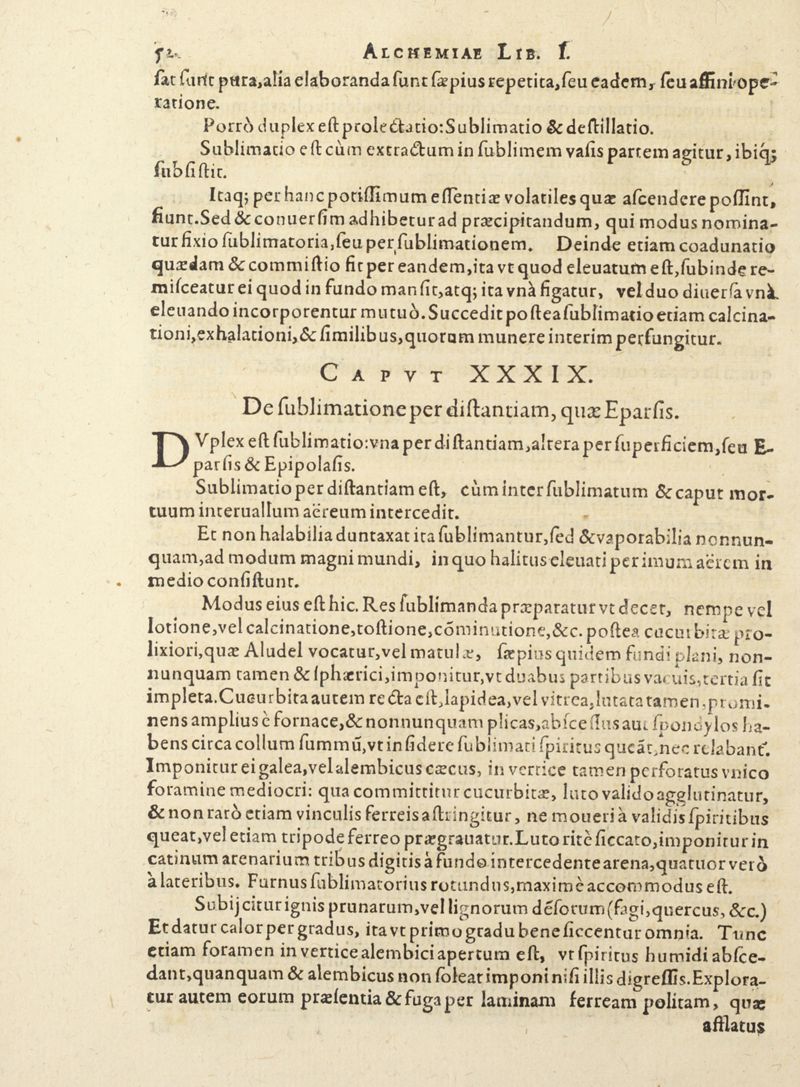 52. ALCHEMIAE LIB. I.
sat sunt pura, alia elaboranda sunt sæpius repetita, seu eadem, seu affini ope-
ratione.
Porrò duplex est prolectatio: Sublimatio & destillatio.
Sublimatio est cùm extractum in sublimem vasis partem agitur, ibiq;
subsistit.
Itaq; per hanc potissimum essentiæ volatiles quæ ascendere possint,
fiunt. Sed & conuersim adhibetur ad præcipitandum, qui modus nomina-
tur fixio sublimatoria, seu per sublimationem. Deinde etiam coadunatio
quædam & commistio fit per eandem, ita vt quod eleuatum est, subinde re-
misceatur ei quod in fundo mansit, atq; ita vnà figatur, vel duo diuersa vnà
eleuando incorporentur mutuò. Succedit postea sublimatio etiam calcina-
tioni, exhalationi, & similibus, quorum munere interim perfungitur.
CAPVT XXXIX.
De sublimatione per distantiam, quæ Eparsis.
DVplex est sublimatio: vna per distantiam, altera per superficiem, seu E-
parsis & Epipolasis.
Sublimatio per distantiam est, cùm inter sublimatum & caput mor-
tuum interuallum aëreum intercedit.
Et non halabilia duntaxat ita sublimantur, sed & vaporabilia nonnun-
quam, ad modum magni mundi, in quo halitus eleuati per imum aërem in
medio consistunt.
Modus eius est hic. Res sublimanda præparatur vt decet, nempe vel
lotione, vel calcinatione, tostione, cōminutione, &c. postea cucurbitæ pro-
lixiori, quæ Aludel vocatur, vel matulæ, sæpius quidem fundi plani, non-
nunquam tamen & sphærici, imponitur, vt duabus partibus vacuis, tertia sit
impleta. Cucurbita autem recta est, lapidea, vel vitrea, lutata tamen, promi-
nens amplius è fornace, & nonnunquam plicas, abscessus aut spondylos ha-
bens circa collum summū, vt insidere sublimati spiritus queāt, nec relabant.
Imponitur ei galea, vel alembicus cæcus, in vertice tamen perforatus vnico
foramine mediocri: qua committitur cucurbitæ, luto valido agglutinatur,
& non rarò etiam vinculis ferreis astringitur, ne moueri à validis spiritibus
queat, vel etiam tripode ferreo prægrauatur. Luto ritè siccato, imponitur in
catinum arenarium tribus digitis à fundo intercedente arena, quatuor verò
à lateribus. Furnus sublimatorius rotundus, maximè accommodus est.
Subijcitur ignis prunarum, vel lignorum désorum (fagi, quercus, &c.)
Et datur calor per gradus, ita vt primo gradu bene siccentur omnia. Tunc
etiam foramen in vertice alembici apertum est, vt spiritus humidi absce-
dant, quanquam & alembicus non soleat imponi nisi illis digressis. Explora-
tur autem eorum præsentia & fuga per laminam ferream politam, quæ
afflatus